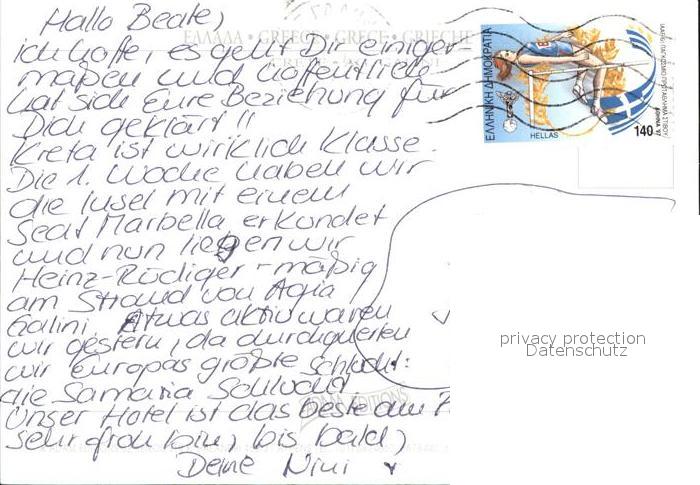 Hallo Beate,
ΕΛΛΑΔΑ • GREECE • GRECE • GRIECHE
ich hoffe, es geht Dir einiger-
maßen und hoffentlich
hat sich Eure Beziehung für
Dich geklärt!!
Kreta ist wirklich Klasse.
Die 1. Woche haben wir
die Insel mit einem
Seat Marbella erkundet
und nun liegen wir
Heinz-Rüdiger-mäßig
am Strand von Agia
Galini. Etwas aktiv waren
wir gestern, da durchquerten
wir Europas größte Schlucht:
die Samaria Schlucht.
Unser Hotel ist das beste am
sehr froh bin, bis bald,
Deine Nini
ΕΛΛΗΝΙΚΗ ΔΗΜΟΚΡΑΤΙΑ
HELLAS
140
ΑΘΗΝΑ '97
privacy protection
Datenschutz